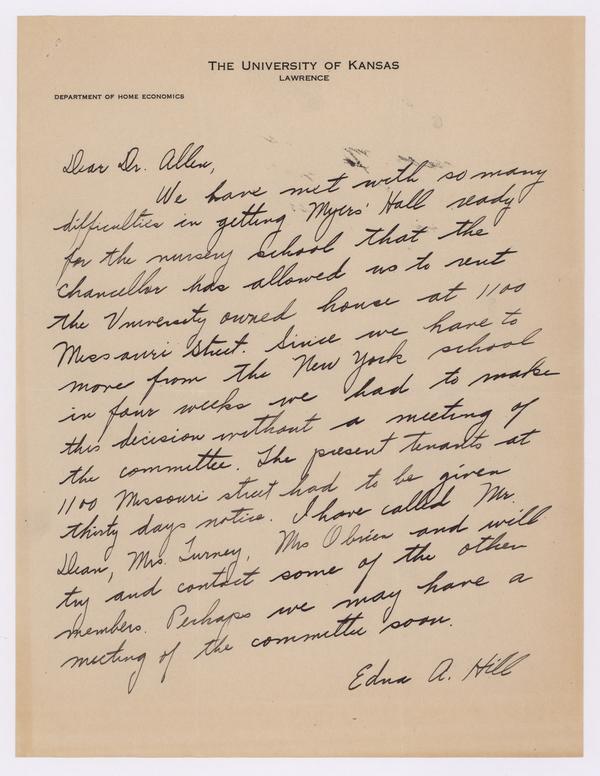 THE UNIVERSITY OF KANSAS
LAWRENCE
DEPARTMENT OF HOME ECONOMICS
Dear Dr. Allen,
We have met with so many
difficulties in getting Myers' Hall ready
for the nursery school that the
chancellor has allowed us to rent
the University owned house at 1100
Missouri Street. Since we have to
move from the New York school
in four weeks we had to make
this decision without a meeting of
the committee. The present tenants at
1100 Missouri street had to be given
thirty days notice. I have called Mr.
Dean, Mrs. Turney, Mrs O'brien and will
try and contact some of the other
members. Perhaps we may have a
meeting of the committee soon.
Edna A. Hill